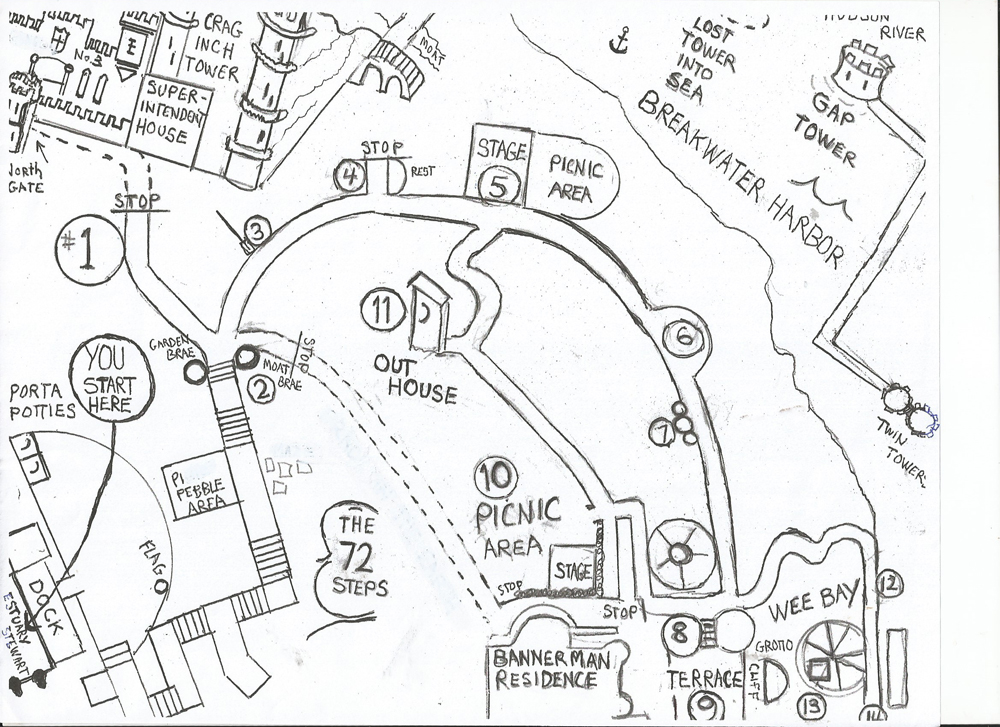 CRAG
INCH
TOWER
No. 3
SUPER-
INTENDENT
HOUSE
NORTH
GATE
MOAT
LOST
TOWER
INTO
SEA
HUDSON
RIVER
GAP
TOWER
BREAKWATER HARBOR
TWIN
TOWERS
STOP
#1
3
4
STOP
REST
STAGE
5
PICNIC
AREA
6
7
11
OUT
HOUSE
GARDEN
BRAE
2
MOAT
BRAE
STOP
YOU
START
HERE
PORTA
POTTIES
PEBBLE
AREA
FLAG
DOCK
ESTUARY
STEWART
THE
72
STEPS
10
PICNIC
AREA
STAGE
STOP
STOP
BANNERMAN
RESIDENCE
8
TERRACE
9
GROTTO
CLIFF
WEE BAY
12
13